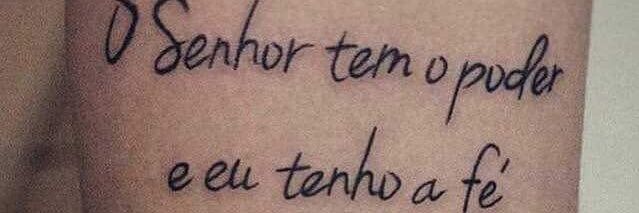 O Senhor tem o poder
e eu tenho a fé